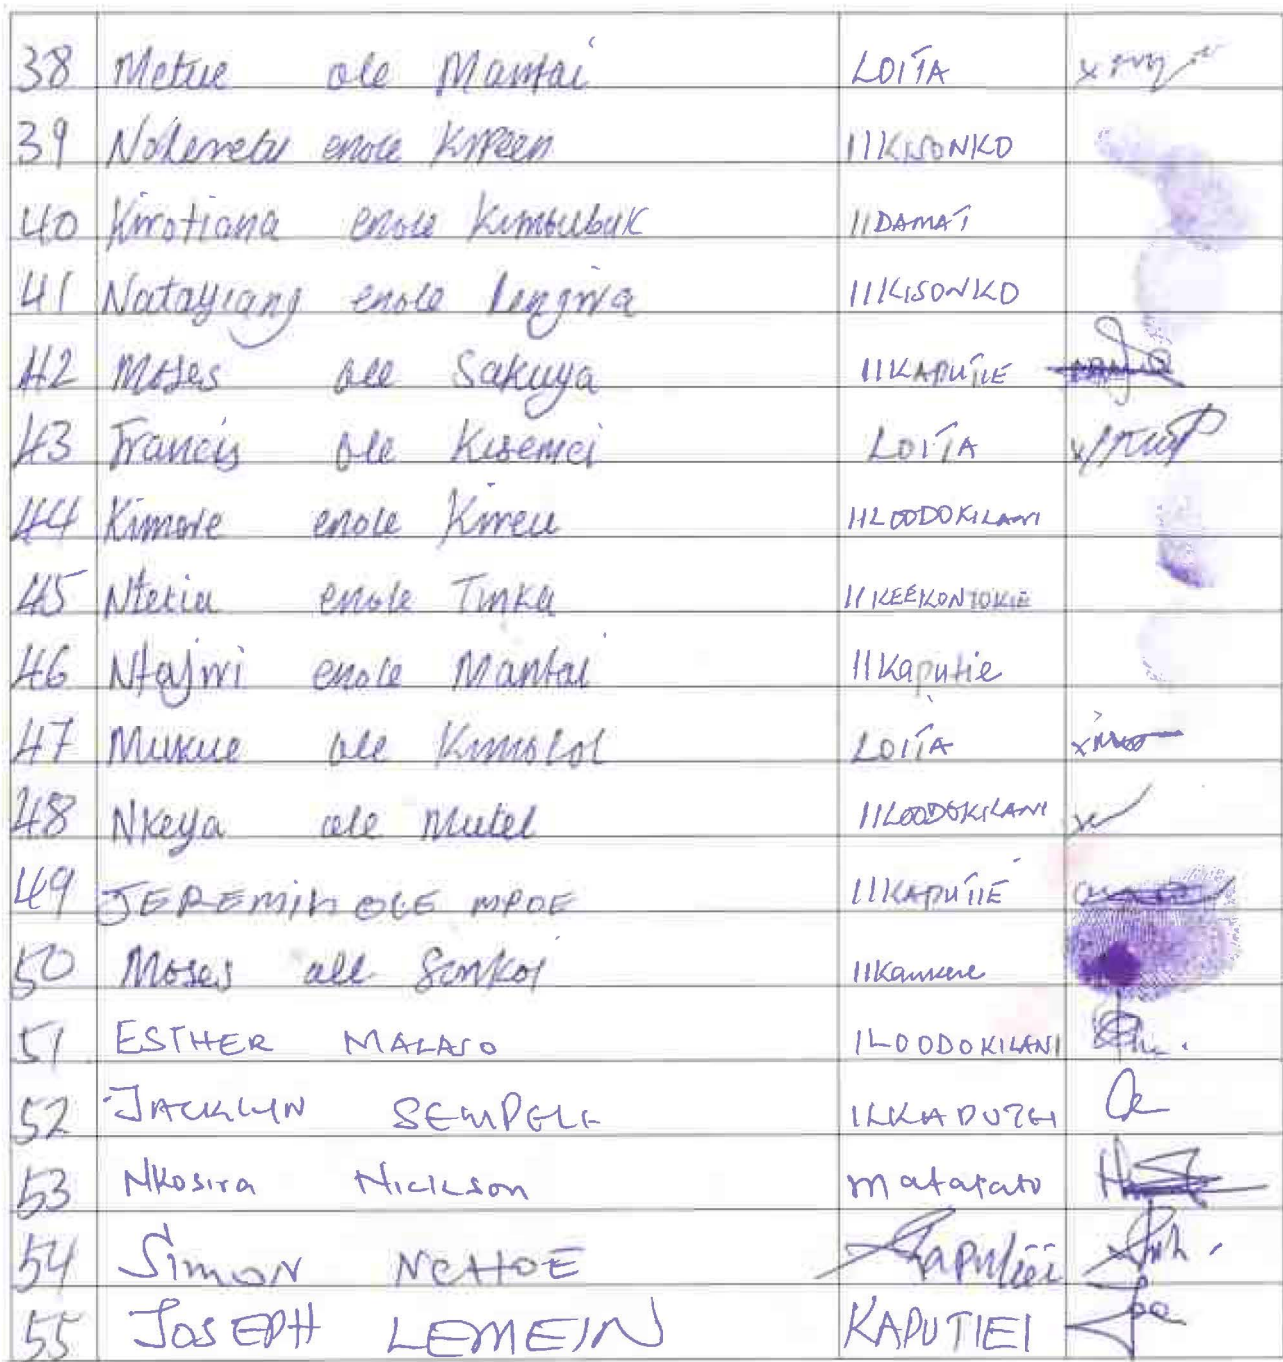 38 Metue ole Mantai LOITA
39 Noterretu enole Kipeen IIKISONKO
40 Kirrotiana enole Kimbulbuk IIDAMAT
41 Natayiang enole Lengwa IIKISONKO
42 Moses ole Sakuya IIKAPUTIE
43 Francis ole Kisemei LOITA
44 Kimore enole Kirreu IILOODOKILANI
45 Ntetiu enole Tinka IIKEEKONYOKIE
46 enole Mantai IIKaputie
47 Mukue ole Kimolol LOITA
48 Nkeya ole Mutel IILOODOKILANI
49 JEREMIH OLE MPOE IIKAPUTIE
50 Moses ole Senkoi IIKankere
51 ESTHER MALASO ILOODOKILANI
52 JACKLYN SEMPELE ILKAPUTEI
53 Nkosira Nickson matapato
54 Simon NCHOE Kaputiei
55 JOSEPH LEMEIN KAPUTIEI Joe